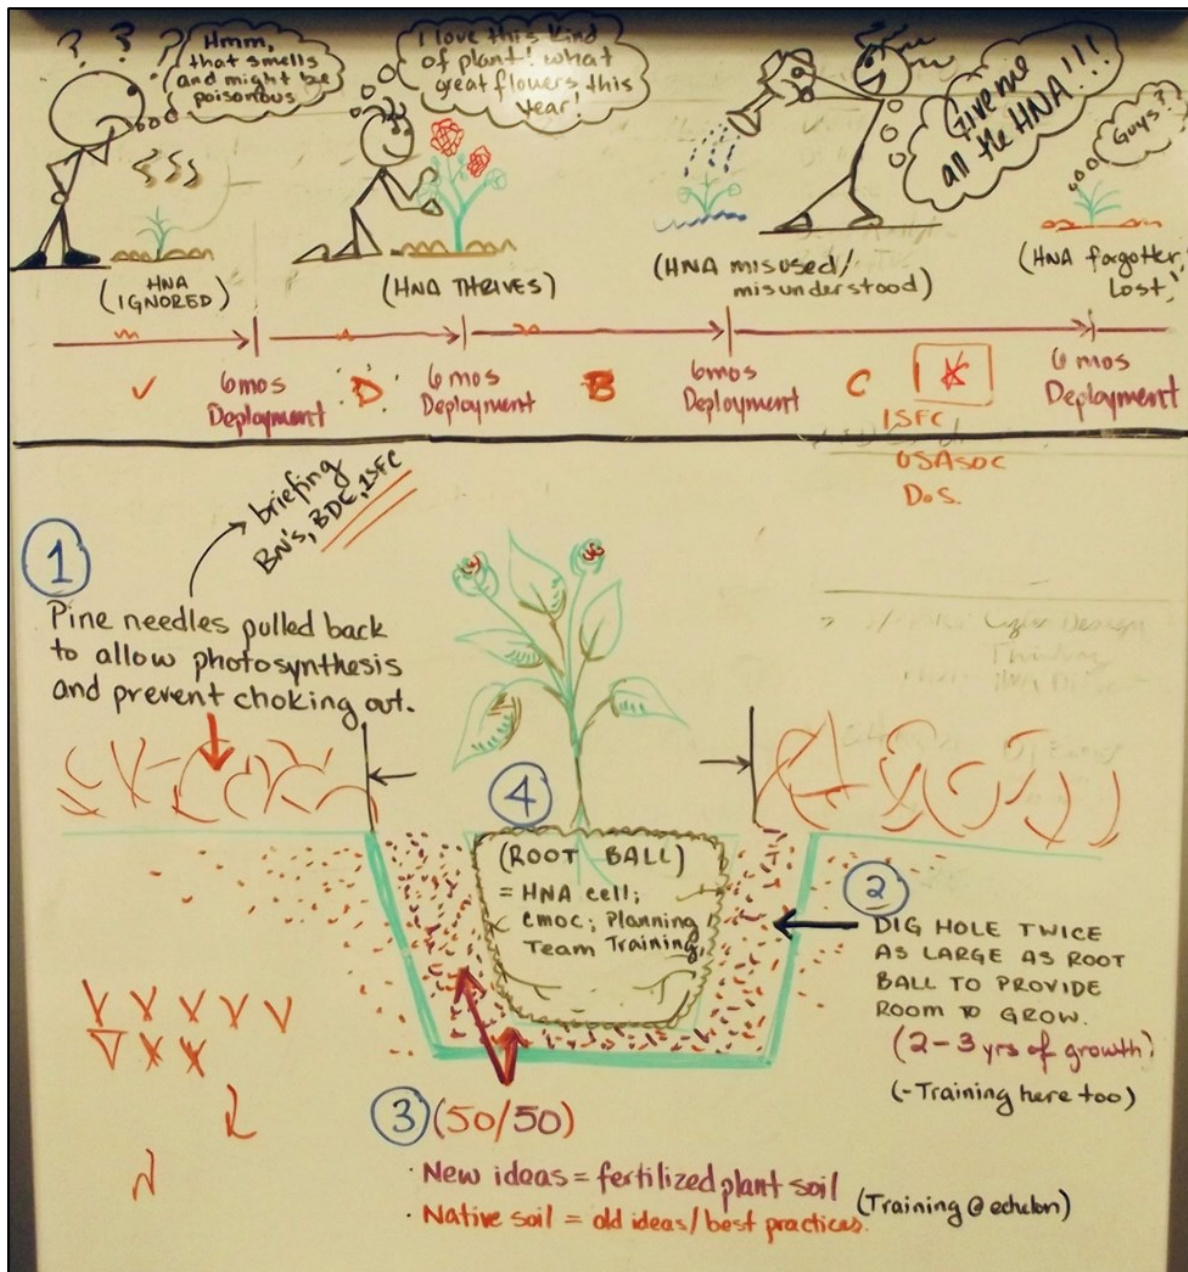 ? ? ?
Hmm,
that smells
and might be
poisonous
I love this kind
of plant! what
great flowers this
year!
Give me
all the HNA!!!
Guys?
HNA
(IGNORED)
(HNA THRIVES)
(HNA misused/
misunderstood)
(HNA forgotten,
Lost!
6mos
Deployment
D
6 mos
Deployment
B
6mos
Deployment
C
6 mos
Deployment
1SFC
USASOC
DoS.
briefing
BN's, BDE, 1SFC
1
Pine needles pulled back
to allow photosynthesis
and prevent choking out.
4
(ROOT BALL)
= HNA cell;
CMOC; Planning
Team Training,
2
DIG HOLE TWICE
AS LARGE AS ROOT
BALL TO PROVIDE
ROOM TO GROW.
(2-3 yrs of growth)
(-Training here too)
3 (50/50)
· New ideas = fertilized plant soil
(Training @ echelon)
· Native soil = old ideas/best practices.